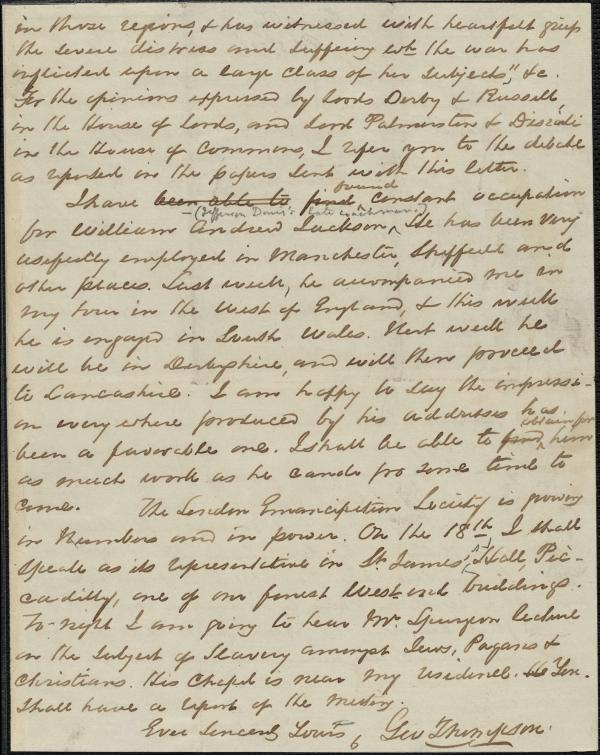 in those regions, & has witnessed with heartfelt grief
the severe distress and suffering wh. the war has
inflicted upon a large class of her subjects", &c.
For the opinions expressed by Lords Derby & Russell,
in the House of Lords, and Lord Palmerston & Disraeli
in the House of Commons, I refer you to the debate
as reported in the papers sent with this letter.
I have been able to find found constant occupation
— (Jefferson Davis's late coachman)
for William Andrew Jackson. He has been very
usefully employed in Manchester, Sheffield and
other places. Last week, he accompanied me in
my tour in the West of England, & this week
he is engaged in South Wales. Next week he
will be in Derbyshire, and will then proceed
to Lancashire. I am happy to say the impressi-
on every where produced by his addresses has
been a favorable one. I shall be able to find obtain for him
as much work as he can do for some time to
come. The London Emancipation Society is growing
in Numbers and in power. On the 18th, I shall
speak as its representative in St. James's Hall, Pic-
cadilly, one of our finest West-end buildings.
To-night I am going to hear Mr. Spurgeon lecture
on the subject of Slavery amongst Jews, Pagans &
Christians. His Chapel is near my residence. You
shall have a report of the meeting.
Ever Sincerely Yours,
Geo Thompson.